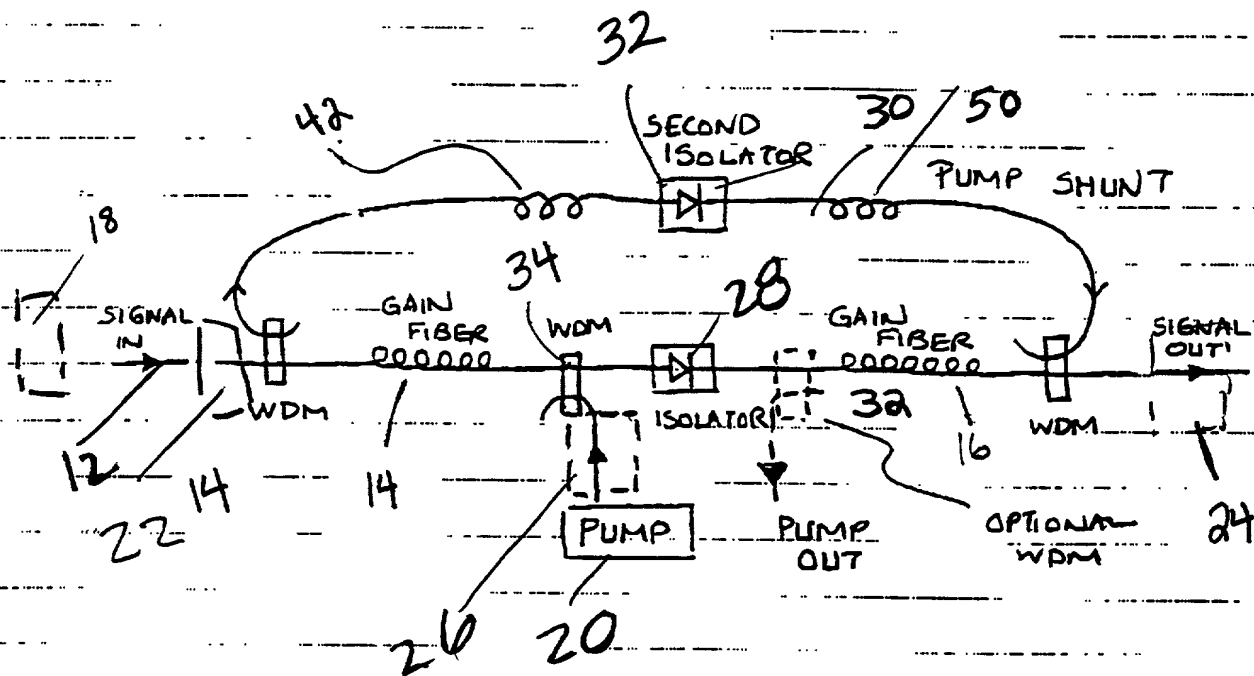 32
42
SECOND
ISOLATOR
30
50
PUMP SHUNT
18
34
28
SIGNAL
IN
GAIN
FIBER
WDM
GAIN
FIBER
SIGNAL
OUT
WDM
ISOLATOR
32
WDM
12
14
14
16
22
26
PUMP
PUMP
OUT
OPTIONAL
WDM
24
20